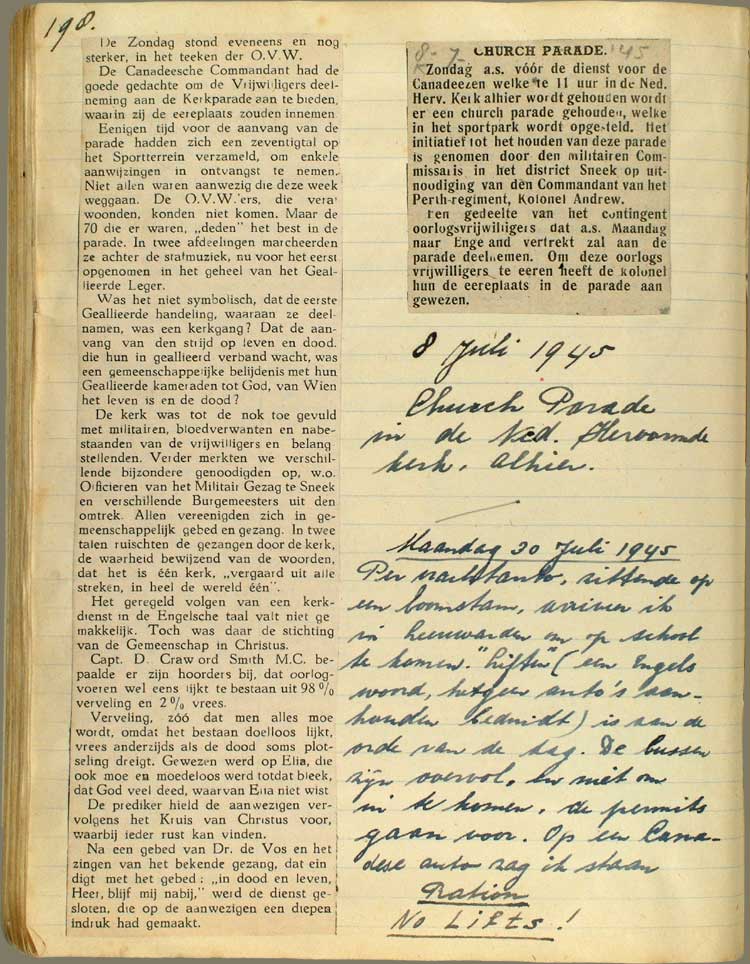 198.
De Zondag stond eveneens en nog
sterker, in het teeken der O.V.W.
De Canadeesche Commandant had de
goede gedachte om de Vrijwilligers deel-
neming aan de Kerkparade aan te bieden,
waarin zij de eereplaats zouden innemen
Eenigen tijd voor de aanvang van de
parade hadden zich een zeventigtal op
het Sportterrein verzameld, om enkele
aanwijzingen in ontvangst te nemen.
Niet allen waren aanwezig die deze week
weggaan. De O.V.W.'ers, die veraf
woonden, konden niet komen. Maar de
70 die er waren, „deden" het best in de
parade. In twee afdeelingen marcheerden
ze achter de stafmuziek, nu voor het eerst
opgenomen in het geheel van het Geal-
lieerde Leger.
Was het niet symbolisch, dat de eerste
Geallieerde handeling, waaraan ze deel-
namen, was een kerkgang? Dat de aan-
vang van den strijd op leven en dood.
die hun in geallieerd verband wacht, was
een gemeenschappelijke belijdenis met hun
Geallieerde kameraden tot God, van Wien
het leven is en de dood?
De kerk was tot de nok toe gevuld
met militairen, bloedverwanten en nabe-
staanden van de vrijwilligers en belang
stellenden. Verder merkten we verschil-
lende bijzondere genoodigden op, w.o.
Officieren van het Militair Gezag te Sneek
en verschillende Burgemeesters uit den
omtrek. Allen vereenigden zich in ge-
meenschappelijk gebed en gezang. In twee
talen ruischten de gezangen door de kerk,
de waarheid bewijzend van de woorden,
dat het is één kerk, „vergaard uit alle
streken, in heel de wereld één".
Het geregeld volgen van een kerk-
dienst in de Engelsche taal valt niet ge
makkelijk. Toch was daar de stichting
van de Gemeenschap in Christus.
Capt. D. Craw ord Smith M.C. be-
paalde er zijn hoorders bij, dat oorlog-
voeren wel eens lijkt te bestaan uit 98 %
verveling en 2 % vrees.
Verveling, zóó dat men alles moe
wordt, omdat het bestaan doelloos lijkt,
vrees anderzijds als de dood soms plot-
seling dreigt. Gewezen werd op Elia, die
ook moe en moedeloos werd totdat bleek,
dat God veel deed, waarvan Elia niet wist
De prediker hield de aanwezigen ver-
volgens het Kruis van Christus voor,
waarbij ieder rust kan vinden.
Na een gebed van Dr. de Vos en het
zingen van het bekende gezang, dat ein
digt met het gebed: „in dood en leven,
Heer, blijf mij nabij," werd de dienst ge-
sloten, die op de aanwezigen een diepen
indruk had gemaakt.
8-7-'45
CHURCH PARADE.
Zondag a.s. vóór de dienst voor de
Canadeezen welke te 11 uur in de Ned.
Herv. Kerk alhier wordt gehouden wordt
er een church parade gehouden, welke
in het sportpark wordt opgesteld. Het
initiatief tot het houden van deze parade
is genomen door den militairen Com-
missaris in het district Sneek op uit-
noodiging van den Commandant van het
Perth-regiment, Kolonel Andrew.
Een gedeelte van het contingent
oorlogsvrijwilligers dat a.s. Maandag
naar Engeland vertrekt zal aan de
parade deelnemen. Om deze oorlogs
vrijwilligers te eeren heeft de kolonel
hun de eereplaats in de parade aan
gewezen.
8 Juli 1945
Church Parade
in de Ned. Hervormde
kerk, alhier.
Maandag 30 Juli 1945
Per vrachtauto, zittende op
een boomstam, arriveer ik
in Leeuwarden om op school
te komen. "Liften" (een Engels
woord, hetgeen auto's aan-
houden beduidt) is aan de
orde van de dag. De bussen
zijn overvol, en niet om
in te komen, de permits
gaan voor. Op een Cana-
dese auto zag ik staan
Ration
No Lifts!